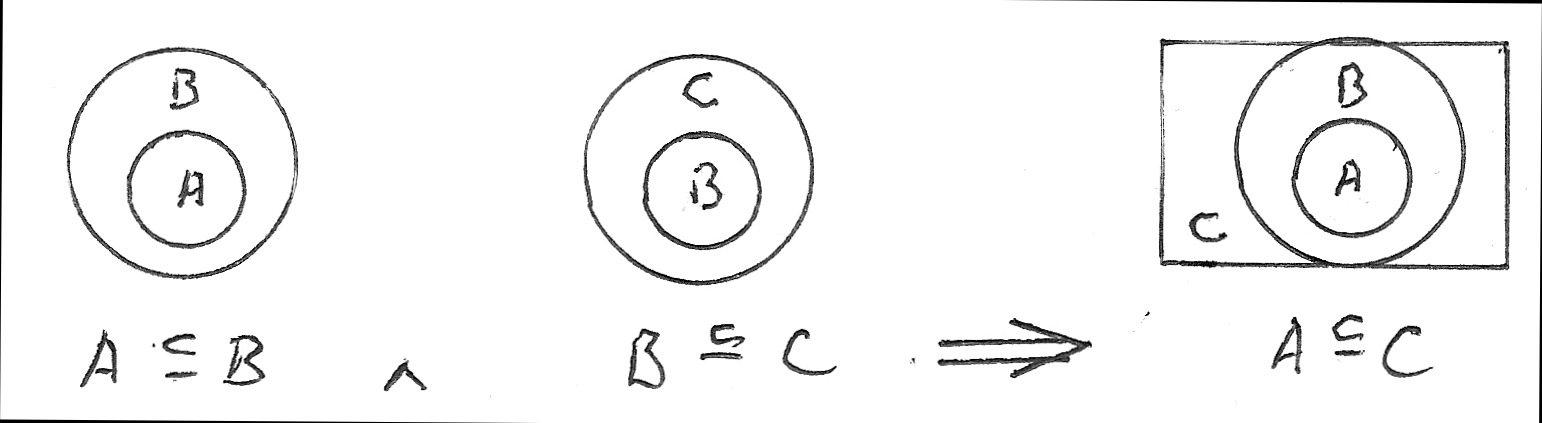 B C B
A B A
C
A ⊆ B ∧ B ⊆ C ⟹ A ⊆ C